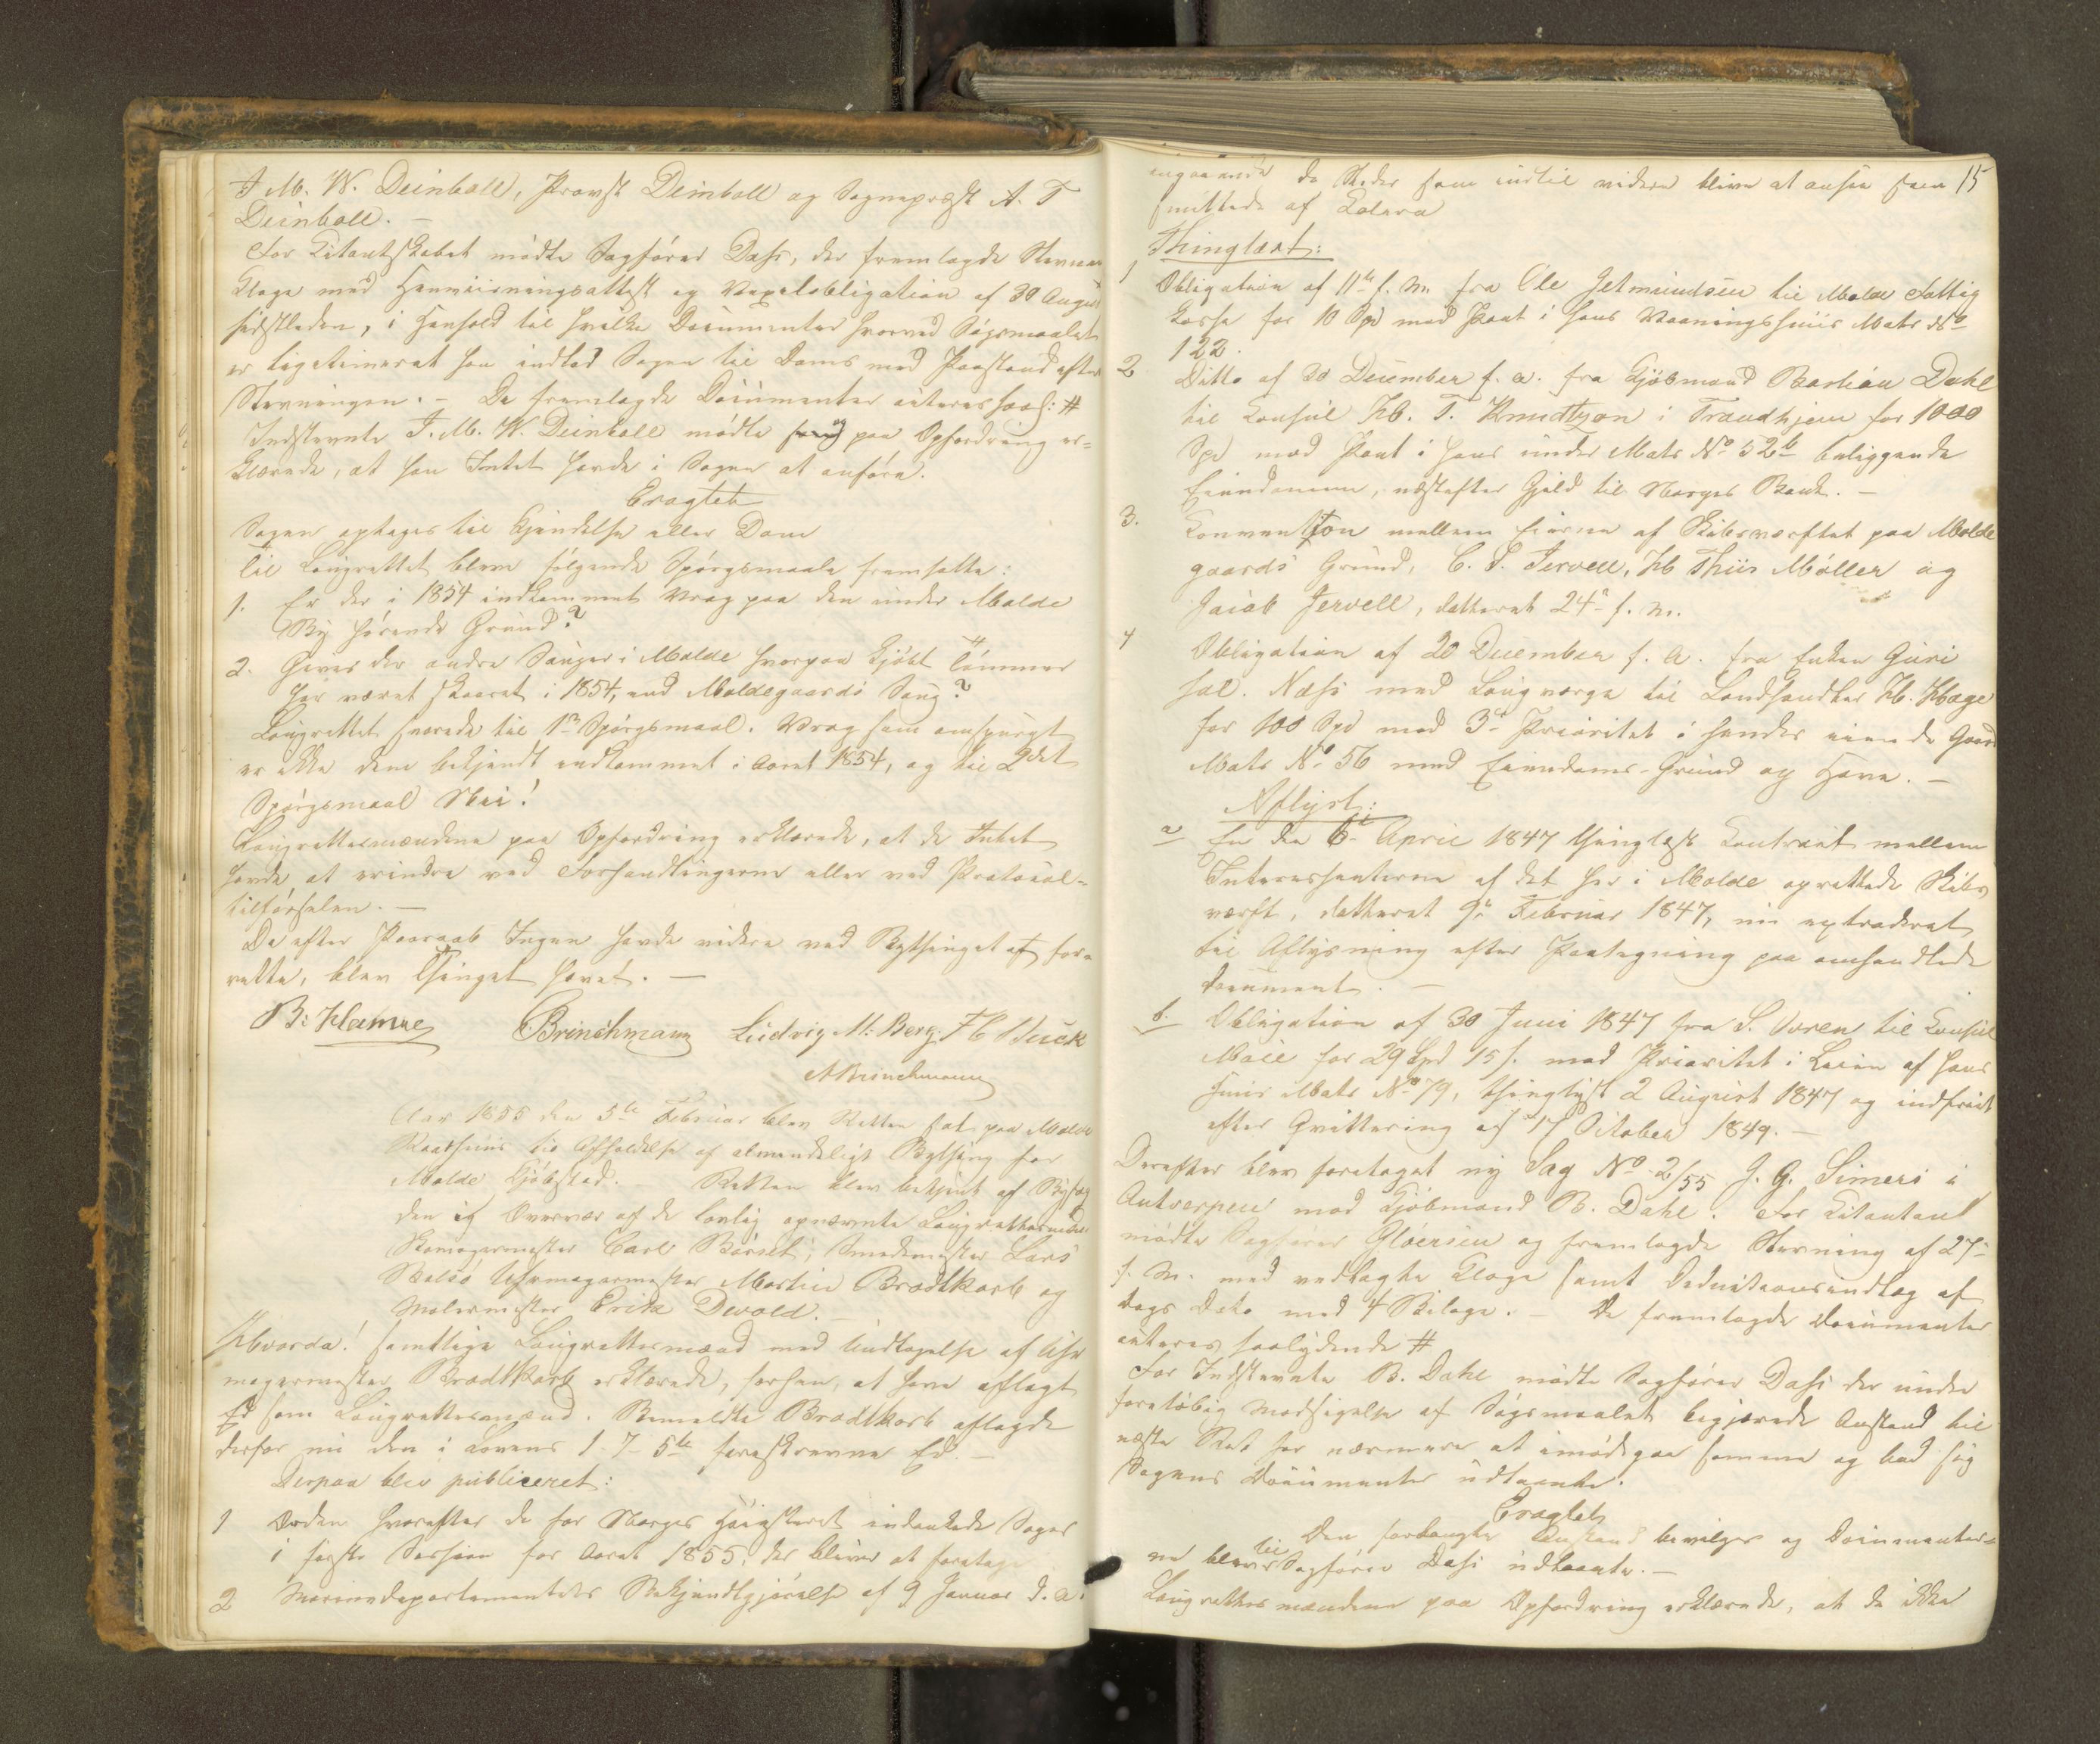 J. M. W. Deinboll, Provst Deinboll og Sogneprest A. T
Deinboll. –
For Citantskabet mødte Sagfører Dahs, der fremlagde Stevne
Klage med Henviisningsattest og Vexelobligation af 30 August
sidstleden, i Henhold til hvilke Documenter hvorved Søgsmaalet
er legitimeret han indlod Sagen til Doms med Paastand efter
Stevningen. – De fremlagde Documenter acteres saal: #
Indstevnte J. M. W. Deinboll mødte paa Opfordring er=
klærede, at han Intet havde i Sagen at anføre.
Eragtet
Sagen optages til Kjendelse eller Dom
Til Laugrettet bleve følgende Spørgsmaale fremsatte:
1. Er der i 1854 indkommet Vrag paa den under Molde
By hørende Grund?
2. Gives der andre Sauger i Molde hvorpaa kjøbt Tømmer
har været skaaret i 1854, end Moldegaards Saug?
Laugrettet svarede til 1ste Spørgsmaal. Vrag som omspurgt
er ikke dem bekjendt indkommet i Aaret 1854, og til 2det
Spørgsmaal Nei!
Laugrettesmændene paa Opfordring erklærede, at de Intet
havde at erindre ved Forhandlingerne eller ved Protocol=
tilførselen. –
Da efter Paaraab Ingen havde videre ved Bythinget at fore
rette, blev Thinget hævet. –
B: Hamre CBrinchmann Ludvig M: Berg. F C Buck
ABrinchmann
Aar 1855 den 5te Februar blev Retten sat paa Molde
Raadhuus til Afholdelse af almindeligt Bything for
Molde Kjøbstad. Retten blev betjent af Byfog
den i Overvær af de lovlig opnævnte Laugrettesmænd
Skomagermester Carl Børset, Smedemester Lars
Bolsø Uhrmagermester Martin Brodtkorb og
Malermester Erik Devold.
Hvorda! samtlige Laugrettesmænd med Undtagelse af Uhr
magermester Brodtkorb erklærede, forhen, at have aflagt
Ed som Laugrettesmænd. Bemeldte Brodtkorb aflagde
derfor nu den i Lovens 1-7-5te foreskrevne Ed. –
Derpaa blev publiceret:
1 Orden hvorefter de for Norges Høiesteret indankede Sager
i første Session for Aaret 1855, der bliver at foretage
2 Marinedepartementets Bekjendtgjørelse af 9 Januar d. A.
15
angaaende de Steder som indtil videre blive at ansee som
smittede af Colera
Thinglæst:
1 Obligation af 11te f. M. fra Ole Jetmundsen til Molde Fattig
kasse for 10 Spd mod Pant i hans Vaaningshuus Matr No
122.
2 Ditto af 30 December f. A. fra Kjøbmand Bastian Dahl
til Consul H. T. Knudtzon i Trondhjem for 1000
Spd mod Pant i hans under Matr No 52b beliggende
Eiendomme, næstefter Gjeld til Norges Bank. –
3. Convention mellem Eierne af Skibsværftet paa Molde
gaards Grund, C. P. Jervell, H Thiis Møller og
Jacob Jervell, datteret 24de f. M.
4 Obligation af 20 December f. A. fra Enken Guri
sal. Næss med Laugværge til Landhandler H. Hage
for 100 Spd med 3de Prioritet i hendes eiende Gaard
Matr No 56 med Eiendoms-Grund og Have. –
Aflyst:
a En den 6te April 1847 thinglæst Contract mellem
Interessenterne af det her i Molde oprettede Skibs
værft, datteret 9de Februar 1847, nu extraderet
til Aflysning efter Paategning paa omhandlede
Document. –
b. Obligation af 30 Juni 1847 fra S. Voren til Consul
Moie for 29 Spd 15 s. mod Prioritet i Leien af hans
Huus Matr No 79, thinglyst 2 August 1847 og indfriet
efter Qvittering af 17 October 1849. –
Derefter blev foretaget ny Sag No 2/55 J. G. Simers i
Antwerpen mod Kjøbmand B. Dahl. For Citanten
mødte Sagfører Gløersen og fremlagde Stevning af 27de
f. M. med vedlagte Klage samt Deductionsindlæg af
Dags Dato med 4 Bilage. – De fremlagde Documenter
acteres saalydende #
For Indstevnte B. Dahl mødte Sagfører Dahs der under
foreløbig Modsigelse af Søgsmaalet begjærede Anstand til
næste Ret for nærmere at imødegaa samme og bad sig
Sagens Documenter udlaante.
Eragtet
Den forlangte Anstand bevilges og Documenter=
ne bliver Sagfører Dahs udlaante. –
Laugrettesmændene paa Opfordring erklærede, at de ikke